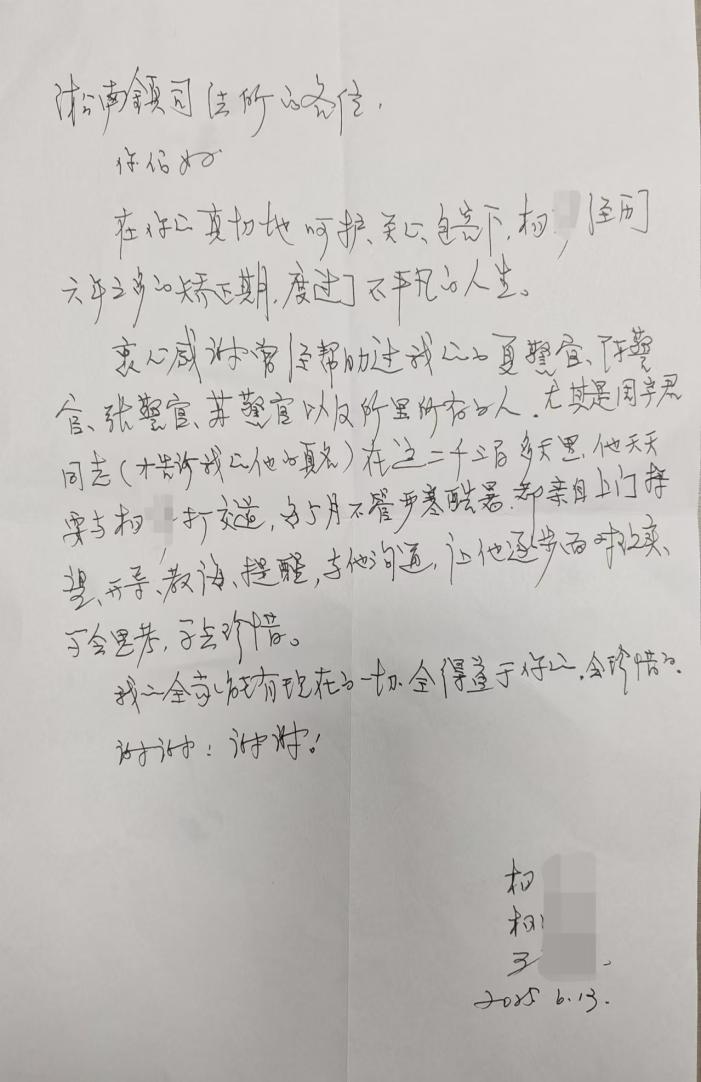 淞南镇司法所的各位,
你们好
在你们真切地呵护、关心、包容下,相 ,经历
六年之多的矫正期,度过了不平凡的人生。
衷心感谢曾经帮助过我们的夏警官、陈警
官、张警官、苏警官以及所里所有的人,尤其是周辛君
同志(才告诉我们他的真名)在这二千三百多天里,他天天
要与相 打交道,每月不管严寒酷暑,都亲自上门探
望、开导、教海、提醒,与他沟通,让他逐步面对现实、
学会思考,学点珍惜。
我们全家能有现在的一切全得益于你们,会珍惜的.
谢谢!谢谢!
相
相
王
2025 6.13.